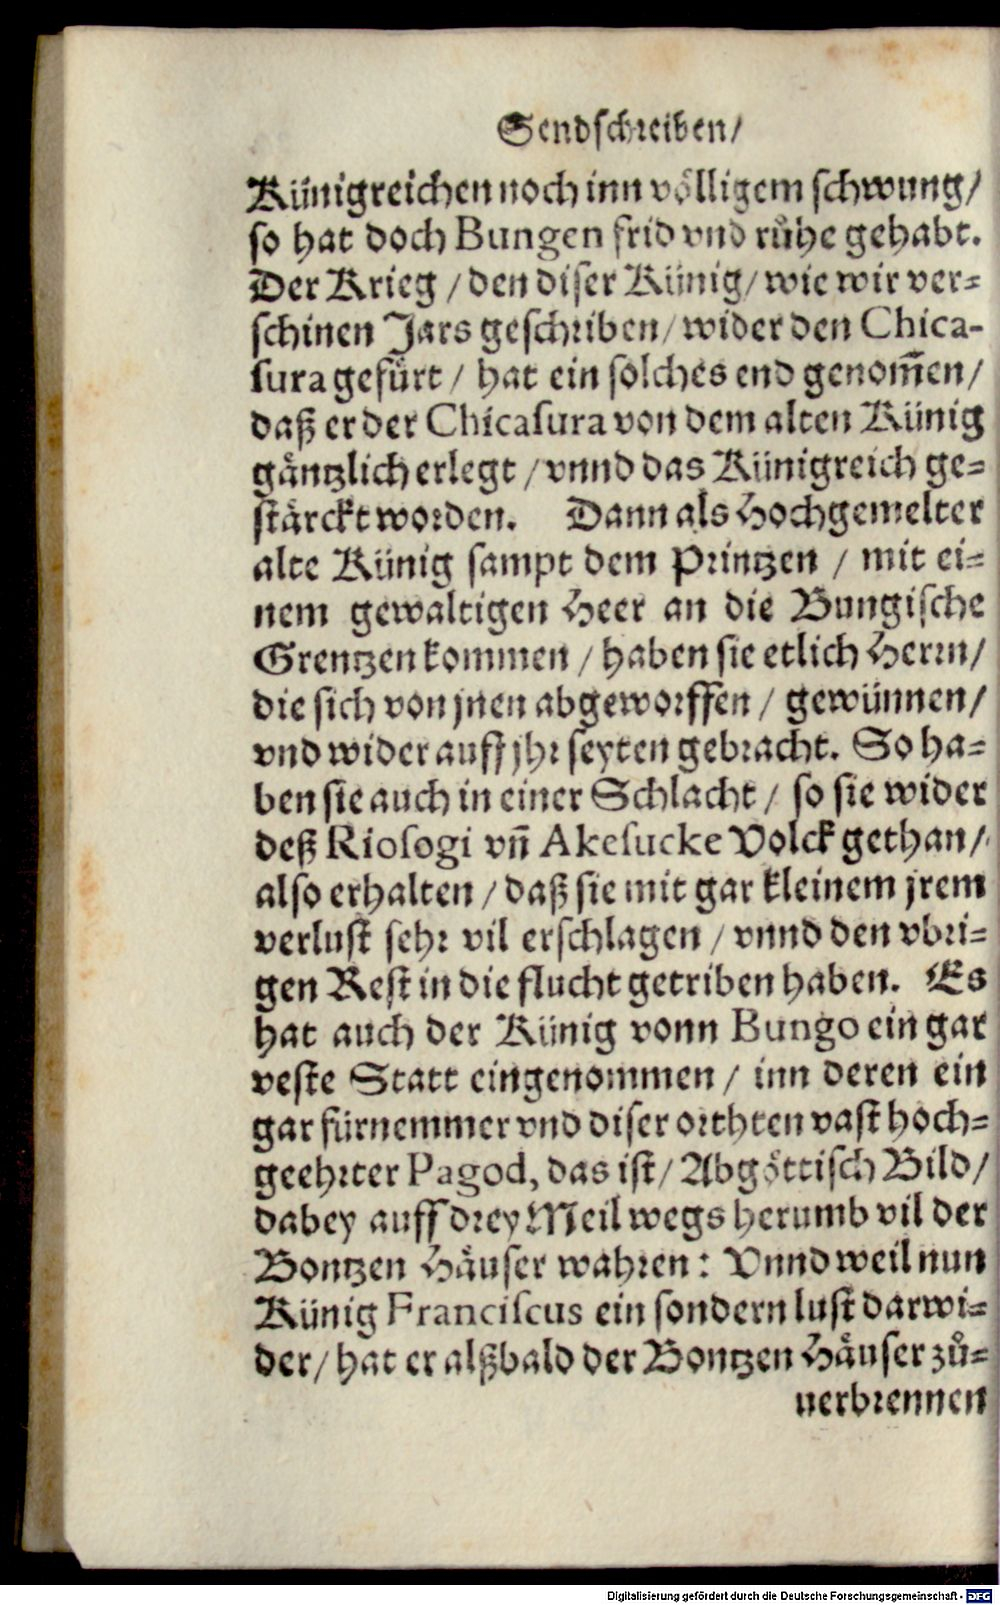 Sendschreiben/
Künigreichen noch inn völligem schwung/
so hat doch Bungen frid vnd růhe gehabt.
Der Krieg / den diser Künig/ wie wir ver=
schinen Jars geschriben/ wider den Chica-
sura gefürt / hat ein solches end genom̃en/
daß er der Chicasura von dem alten Künig
gäntzlich erlegt / vnnd das Künigreich ge=
stärckt worden. Dann als Hochgemelter
alte Künig sampt dem Printzen / mit ei=
nem gewaltigen Heer an die Bungische
Grentzen kommen / haben sie etlich Herrn/
die sich von jnen abgeworffen / gewünnen/
vnd wider auff jhr seyten gebracht. So ha=
ben sie auch in einer Schlacht / so sie wider
deß Riosogi vñ Akesucke Volck gethan/
also erhalten / daß sie mit gar kleinem jrem
verlust sehr vil erschlagen / vnnd den vbri=
gen Rest in die flucht getriben haben. Es
hat auch der Künig vonn Bungo ein gar
veste Statt eingenommen / inn deren ein
gar fürnemmer vnd diser orthten vast hoch=
geehrter Pagod, das ist/ Abgöttisch Bild/
dabey auff drey Meil wegs herumb vil der
Bontzen Häuser wahren: Vnnd weil nun
Künig Franciscus ein sondern lust darwi=
der/ hat er alßbald der Bontzen Häuser zů=
uerbrennen
Digitalisierung gefördert durch die Deutsche Forschungsgemeinschaft - DFG